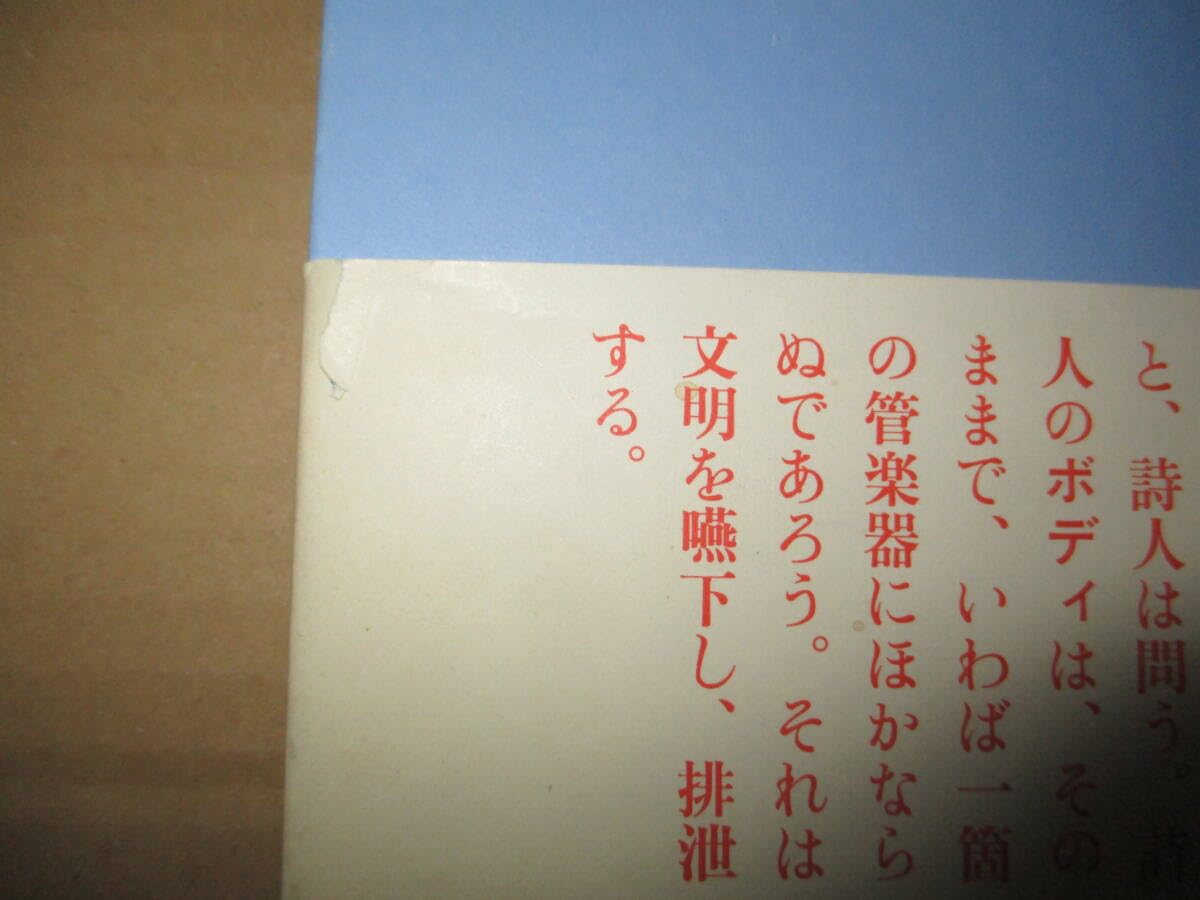 と、詩人は問う。詩
人のボディは、その
ままで、いわば一箇
の管楽器にほかなら
ぬであろう。それは
文明を嚥下し、排泄
する。